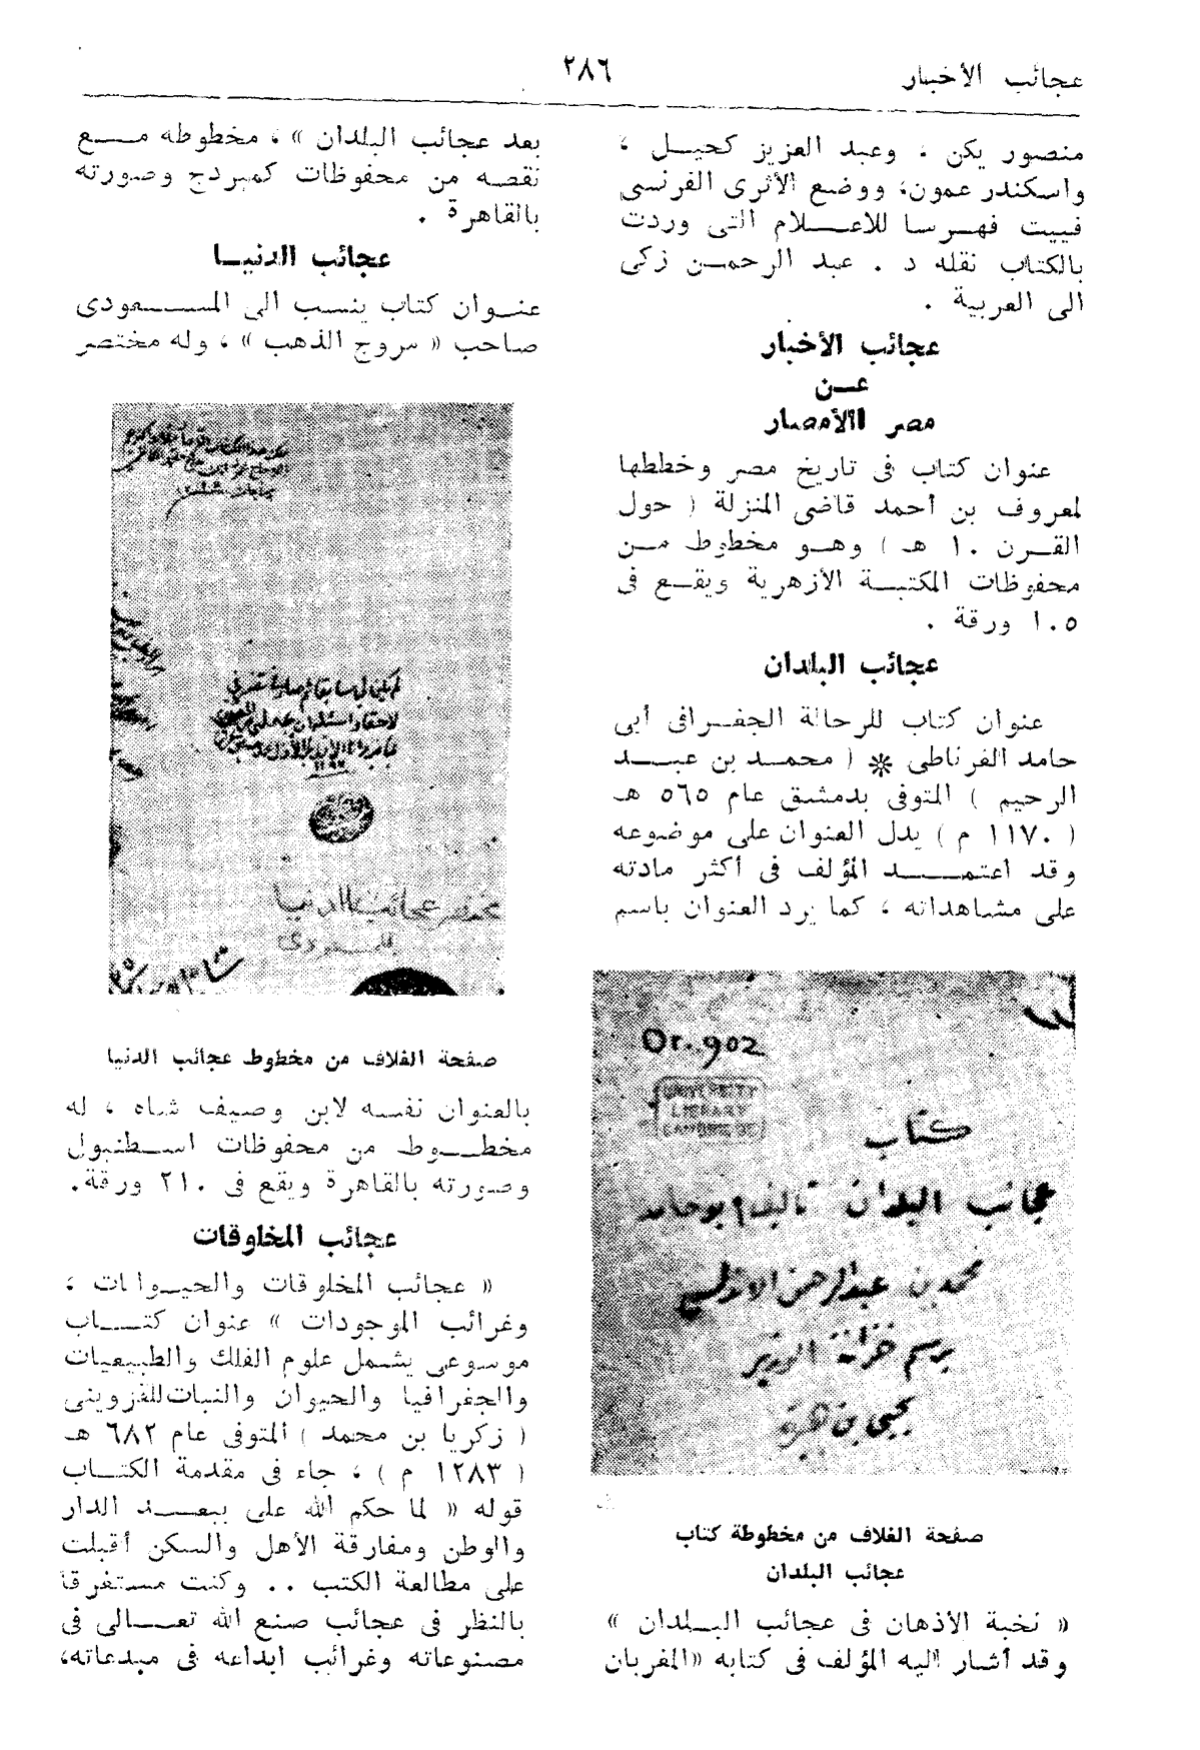 عجائب الأخبار
٢٨٦
منصور يكن ، وعبد العزيز كحيل ،
واسكندر عمون، ووضع الأثرى الفرنسى
فييت فهرسا للاعلام التى وردت
بالكتاب نقله د . عبد الرحمن زكى
الى العربية .
عجائب الأخبار
عن
مصر الأمصار
عنوان كتاب فى تاريخ مصر وخططها
لمعروف بن أحمد قاضى المنزلة ( حول
القرن ١٠ هـ ) وهو مخطوط من
محفوظات المكتبة الأزهرية ويقع فى
١٠٥ ورقة .
عجائب البلدان
عنوان كتاب للرحالة الجغرافى أبى
حامد الغرناطى * ( محمد بن عبد
الرحيم ) المتوفى بدمشق عام ٥٦٥ هـ
( ١١٧٠ م ) يدل العنوان على موضوعه
وقد اعتمد المؤلف فى أكثر مادته
على مشاهداته ، كما يرد العنوان باسم
Or. 902
UNIVERSITY
LIBRARY
كتاب
عجائب البلدان تاليف ابو حامد
محمد بن عبد الرحمن الاندلسي
برسم خزانة الوزير
يحيى بن هبيرة
صفحة الغلاف من مخطوطة كتاب
عجائب البلدان
« نخبة الأذهان فى عجائب البلدان »
وقد أشار اليه المؤلف فى كتابه «المغربان
بعد عجائب البلدان » ، مخطوطه مع
نقصه من محفوظات كمبردج وصورته
بالقاهرة .
عجائب الدنيا
عنوان كتاب ينسب الى المسعودى
صاحب « مروج الذهب » ، وله مختصر
مختصر عجائب الدنيا
للمسعودي
صفحة الغلاف من مخطوط عجائب الدنيا
بالعنوان نفسه لابن وصيف شاه ، له
مخطوط من محفوظات اسطنبول
وصورته بالقاهرة ويقع فى ٢١٠ ورقة.
عجائب المخلوقات
« عجائب المخلوقات والحيوانات ،
وغرائب الموجودات » عنوان كتاب
موسوعى يشمل علوم الفلك والطبيعيات
والجغرافيا والحيوان والنبات للقزوينى
( زكريا بن محمد ) المتوفى عام ٦٨٢ هـ
( ١٢٨٣ م ) ، جاء فى مقدمة الكتاب
قوله « لما حكم الله على ببعد الدار
والوطن ومفارقة الأهل والسكن أقبلت
على مطالعة الكتب .. وكنت مستغرقا
بالنظر فى عجائب صنع الله تعالى فى
مصنوعاته وغرائب ابداعه فى مبدعاته،